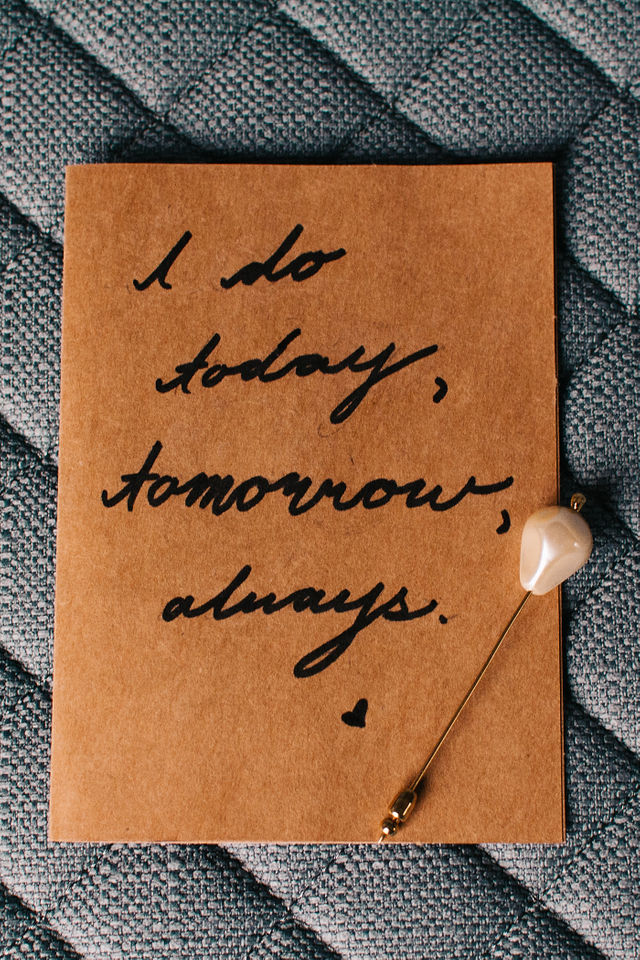 I do
today,
tomorrow,
always.